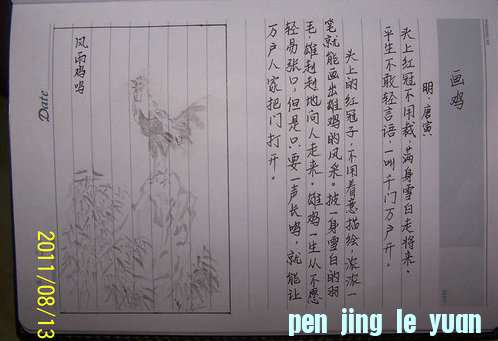 画鸡
明 唐寅
头上红冠不用裁，满身雪白走将来，
平生不敢轻言语，一叫千门万户开。
头上的红冠子，不用着意描绘，浓浓一
笔就能画出雄鸡的风采。披一身雪白的羽
毛，雄赳赳地向人走来。雄鸡一生从不愿
轻易张口，但是只要一声长鸣，就能让
万户人家把门打开。
风雨鸡鸣
Date
2011/08/13
pen jing le yuan